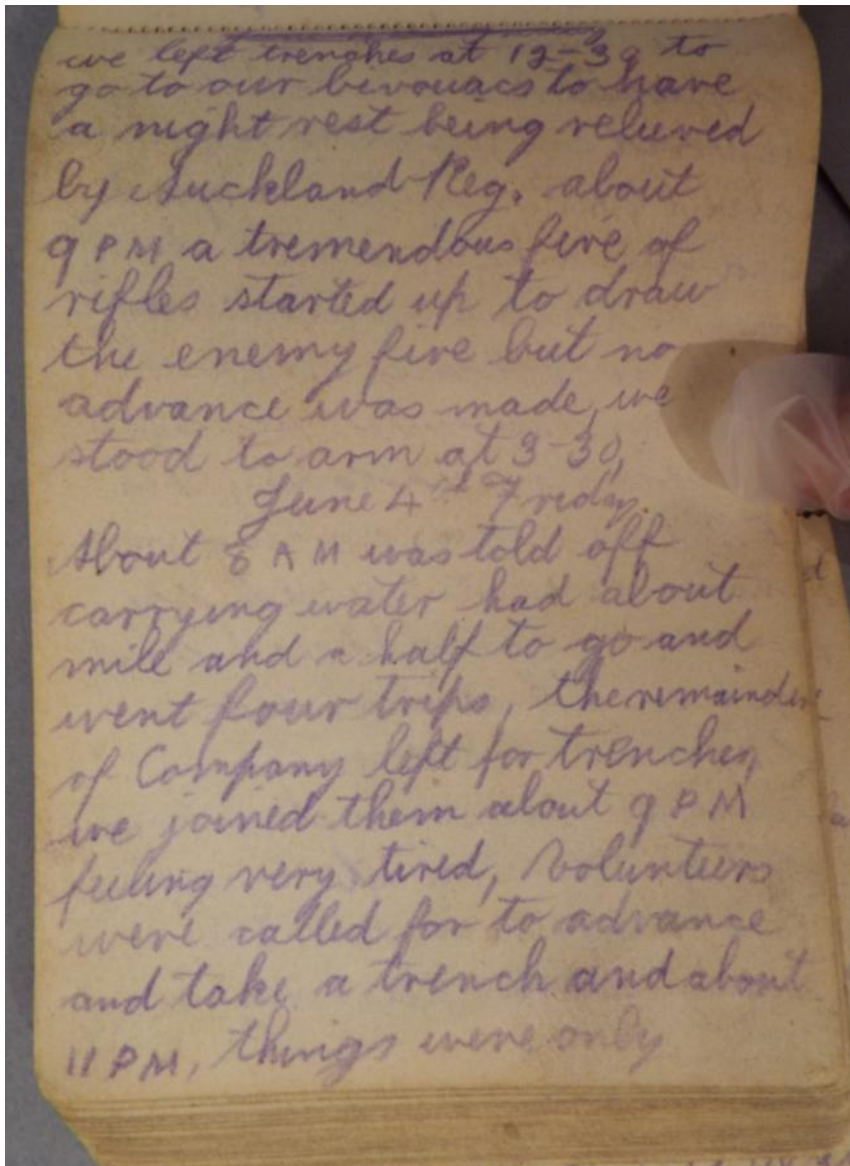 we left trenches at 12-30 to
go to our bivouacs to have
a night rest being relieved
by Auckland Reg. about
9 PM a tremendous fire of
rifles started up to draw
the enemy fire but no
advance was made, we
stood to arm at 3-30,
June 4th Friday.
About 8 AM was told off
carrying water had about
mile and a half to go and
went four trips, the remainder
of Company left for trenches,
we joined them about 9 PM
feeling very tired, Volunteers
were called for to advance
and take a trench and about
11 PM, things were only